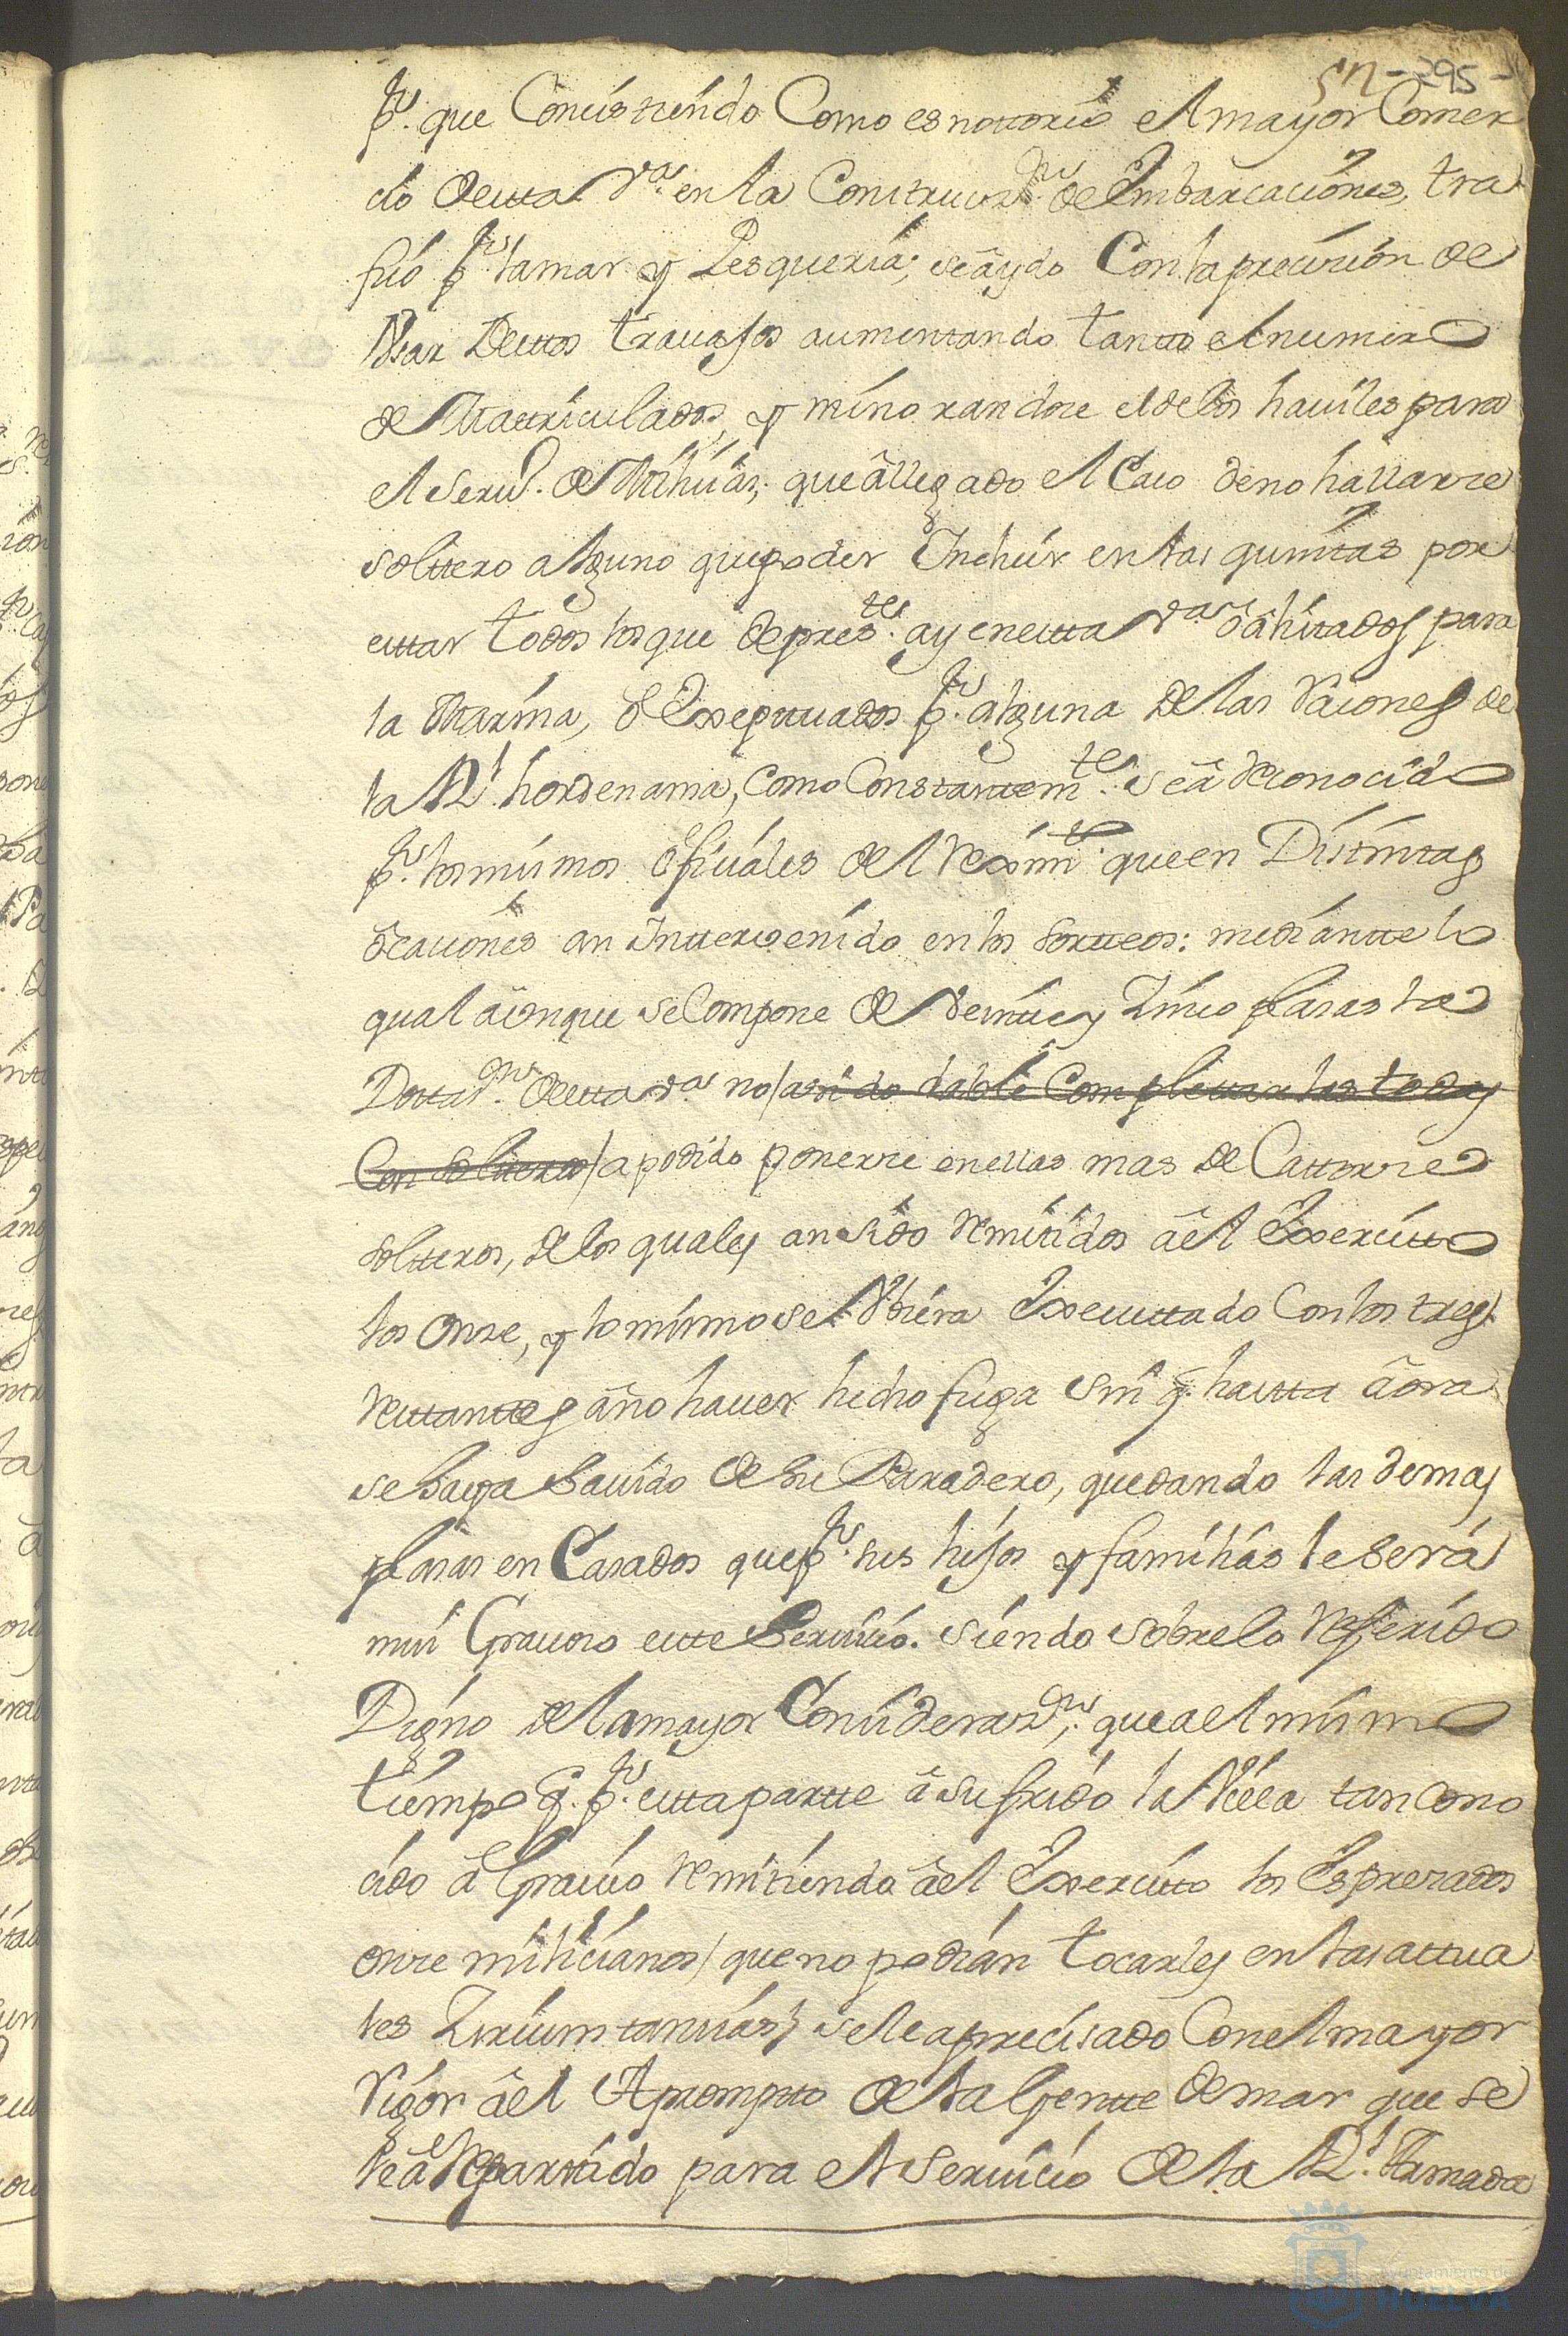 sn - 295 -
pr. que Concistiendo Como es nottorio el mayor Comer
cio de esta Va. en la Construccon. de Embarcaciones, tra
fico pr. la mar y Pesqueria; se â ydo Con la precission de
Usar de estos travajos aumentando tanto el numero
de Matriculados, y minorandose el de los haviles para
el Servo. de Milicias; que â llegado el Caso de no hallarse
soltero alguno que poder Incluir en las quintas por
estar todos los que de presTe. ay en esta Va. ô âlistados para
la Marina, ô Exsepttuados pr. alguna de las raciones de
la Rl. hordenansa, Como Constantemte. se â reconocido
pr. los mismos ôficiales del reximto. que en Distintas
ôcaciones an Intterbenido en los sortteos: mediantte lo
qual âunque se Compone de veintte y Zinco plasas la
Dottasn. de esta Va. no / a sido dable Complettarlas todas
Con solteros / a podido ponerse en ellas mas de Cattorse
soltteros, de los quales an sido remitidos âel Exercitto
los Onse, y lo mismo se Ubiera Executtado Con los tres
restanttes â no haver hecho fuga sin q. hasta âora
se haya Savido de su Paradero, quedando las demas
plasas en Casados que pr. sus hijos y familias le será
mui Gravoso este Servicio. siendo sobre lo referido
Digno de la mayor Considerazn.; que a el mismo
tiempo q. pr. esta partte â sufrido la Villa tan Cono
cido âgravio remitiendo âel Exercitto los Espresados
onse milicianos / que no podian tocarles en las attua
les Zircumstancias / se le a precisado Con el mayor
rigor âel Aprompto de la Gentte de mar que se
le â repartido para el Servicio de la Rl. Armada
Ayuntamiento de
HUELVA